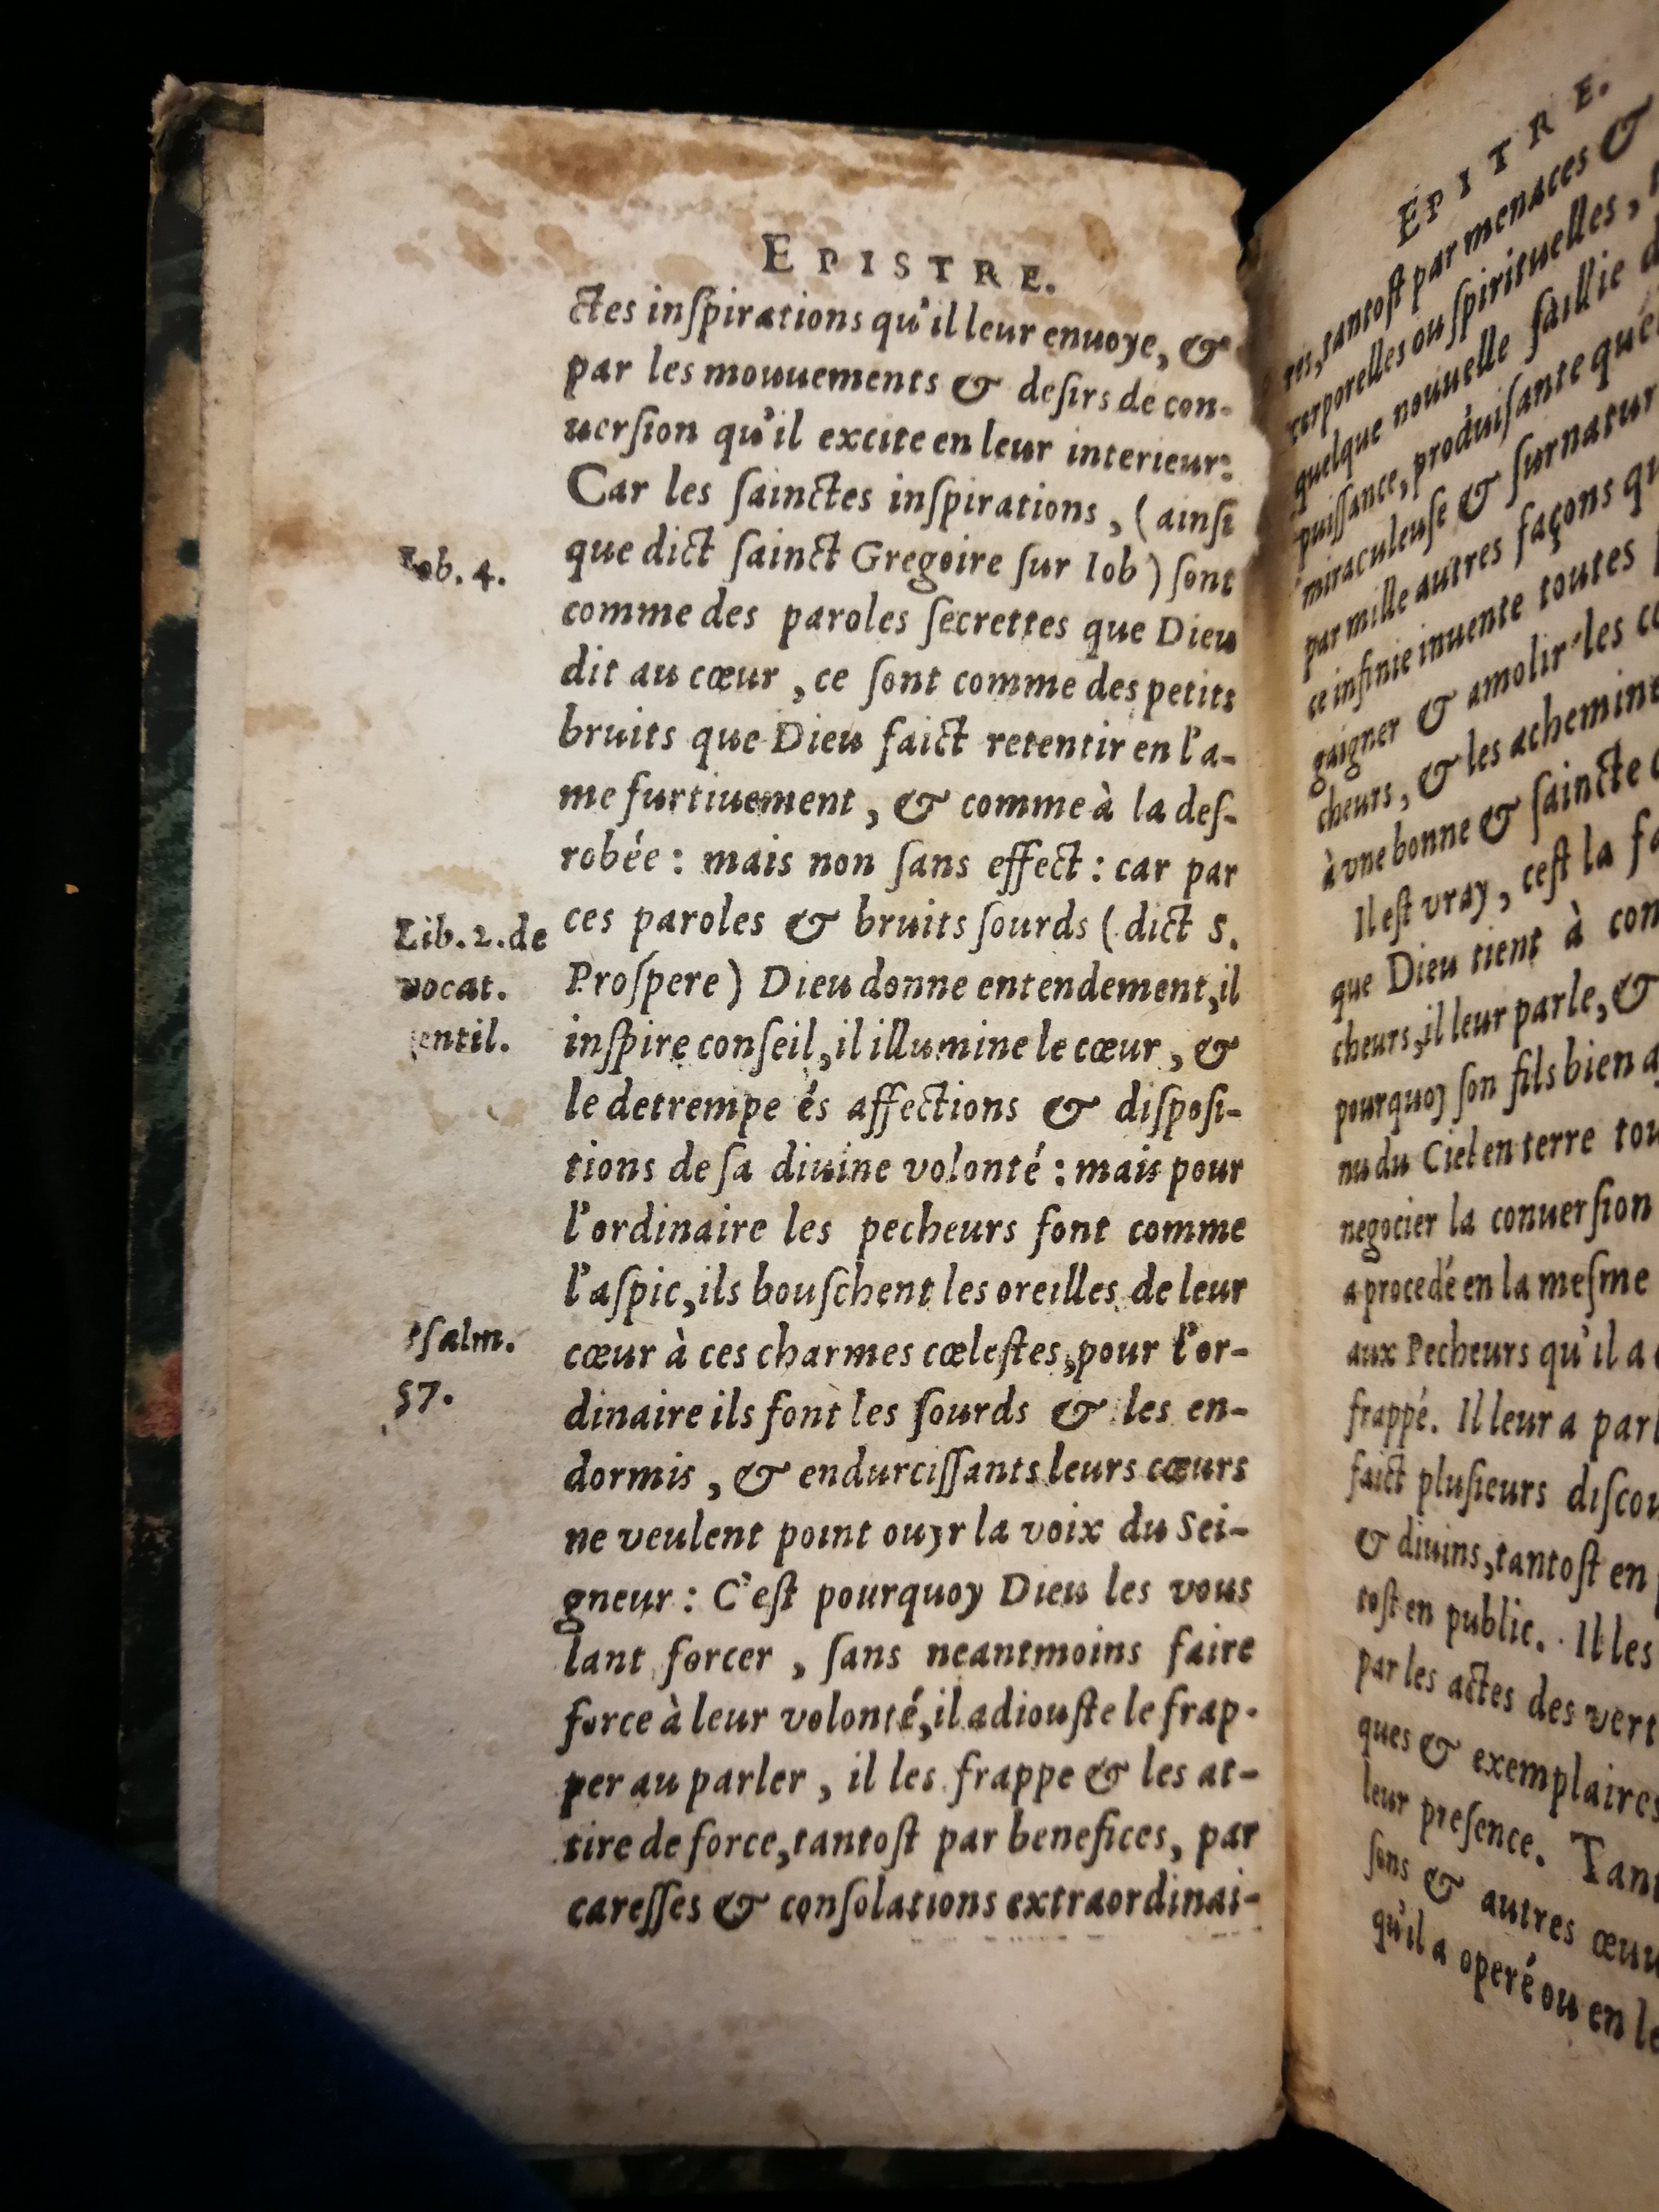 EPISTRE.
ctes inſpirations qu'il leur enuoye, &
par les mouuements & deſirs de con-
uerſion qu'il excite en leur interieur:
Car les ſainctes inſpirations, (ainſi
que dict ſainct Gregoire ſur Iob) ſont
Iob. 4.
comme des paroles ſecrettes que Dieu
dit au cœur, ce ſont comme des petits
bruits que Dieu faict retentir en l'a-
me furtiuement, & comme à la deſ-
robée: mais non ſans effect: car par
ces paroles & bruits ſourds (dict S.
Lib. 2. de
vocat.
gentil.
Proſpere) Dieu donne entendement, il
inſpire conſeil, il illumine le cœur, &
le detrempe és affections & diſpoſi-
tions de ſa diuine volonté: mais pour
l'ordinaire les pecheurs font comme
l'aſpic, ils bouſchent les oreilles de leur
Pſalm.
57.
cœur à ces charmes cœleſtes, pour l'or-
dinaire ils font les ſourds & les en-
dormis, & endurciſſants leurs cœurs
ne veulent point ouyr la voix du Sei-
gneur: C'eſt pourquoy Dieu les vous
lant forcer, ſans neantmoins faire
force à leur volonté, il adiouſte le frap-
per au parler, il les frappe & les at-
tire de force, tantoſt par benefices, par
careſſes & conſolations extraordinai-
EPITRE.
res, tantoſt par menaces &
corporelles ou ſpirituelles,
quelque nouuelle ſaillie
puiſſance, produiſante
miraculeuſe &
par mille autres façons
ce infinie inuente toutes
gaigner & amolir les
cheurs, & les
à vne bonne & ſaincte
Il eſt vray, ceſt la
que Dieu tient à
cheurs, il leur parle, &
pourquoy ſon fils bien
nu du Ciel en terre
negocier la conuerſion
a procedé en la meſme
aux Pecheurs qu'il a
frappé. Il leur a
faict pluſieurs
& diuins, tantoſt en
toſt en public. Il les
par les actes des
ques & exemplaires
leur preſence.
ſons & autres
qu'il a operé ou en